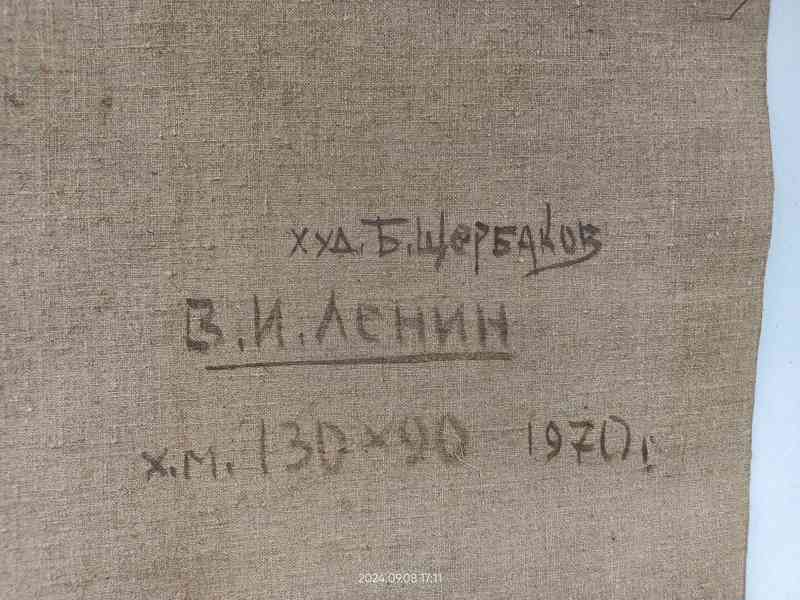 худ. Б. Щербаков
В. И. ЛЕНИН
х.м. 130×90 1970г.
2024.09.08 17:11